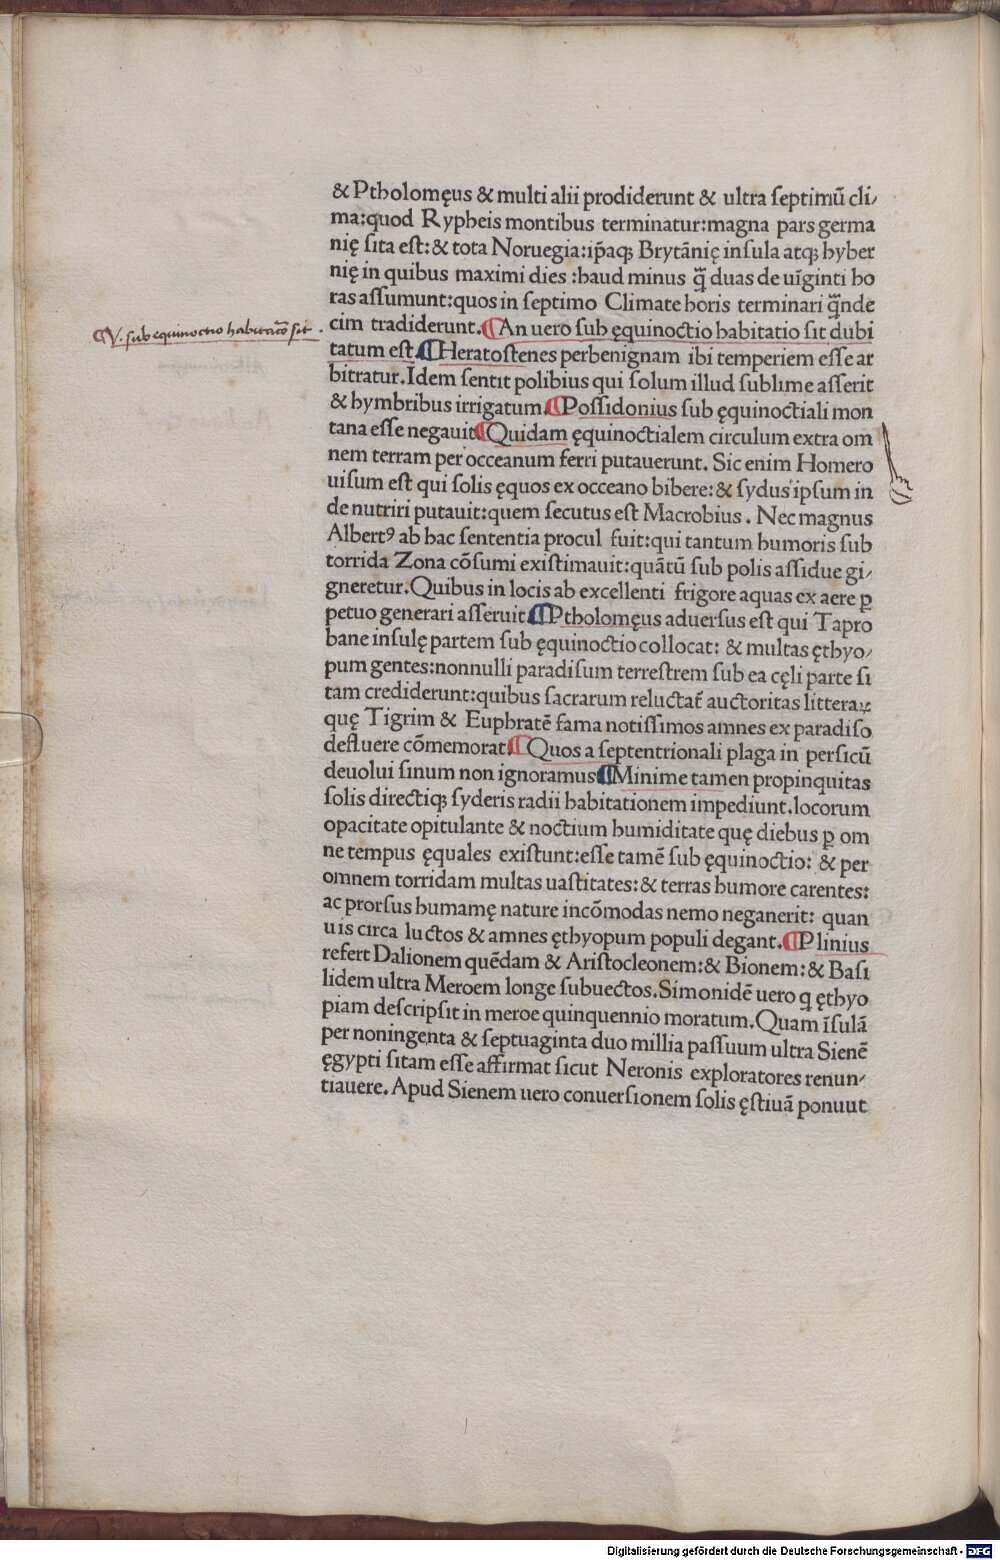 & Ptholomęus & multi alii prodiderunt & ultra septimū cli/
ma:quod Rypheis montibus terminatur:magna pars germa
nię sita est:& tota Noruegia:ip̄aqꝫ Brytānię insula atqꝫ hyber
nię in quibus maximi dies :haud minus q̄ꝫ duas de uiginti ho
ras assumunt:quos in septimo Climate horis terminari q̄nde
cim tradiderunt.¶An uero sub ęquinoctio habitatio sit dubi
V. sub equinoctio habitatio sit
tatum est.¶Heratostenes perbenignam ibi temperiem esse ar
bitratur.Idem sentit polibius qui solum illud sublime asserit
& hymbribus irrigatum.¶Possidonius sub ęquinoctiali mon
tana esse negauit¶Quidam ęquinoctialem circulum extra om
nem terram per occeanum ferri putauerunt. Sic enim Homero
uisum est qui solis ęquos ex occeano bibere:& sydus ipsum in
de nutriri putauit:quem secutus est Macrobius. Nec magnus
Albertꝰ ab hac sententia procul fuit:qui tantum humoris sub
torrida Zona cōsumi existimauit:quātū sub polis assidue gi/
gneretur.Quibus in locis ab excellenti frigore aquas ex aere ꝑ
petuo generari asseruit¶Ptholomęus aduersus est qui Tapro
bane insulę partem sub ęquinoctio collocat: & multas ęthyo/
pum gentes:nonnulli paradisum terrestrem sub ea cęli parte si
tam crediderunt:quibus sacrarum reluctat̄ auctoritas litteraꝝ
quę Tigrim & Euphratē fama notissimos amnes ex paradiso
defluere cōmemorat.¶Quos a septentrionali plaga in persicū
deuolui sinum non ignoramus¶Minime tamen propinquitas
solis directiqꝫ syderis radii habitationem impediunt.locorum
opacitate opitulante & noctium humiditate quę diebus ꝑ om
ne tempus ęquales existunt:esse tamē sub ęquinoctio: & per
omnem torridam multas uastitates:& terras humore carentes:
ac prorsus humamę nature incōmodas nemo neganerit: quan
uis circa luctos & amnes ęthyopum populi degant.¶Plinius
refert Dalionem quēdam & Aristocleonem:& Bionem:& Basi
lidem ultra Meroem longe subuectos.Simonidē uero q ęthyo
piam descripsit in meroe quinquennio moratum.Quam īsulā
per noningenta & septuaginta duo millia passuum ultra Sienē
ęgypti sitam esse affirmat sicut Neronis exploratores renun/
tiauere.Apud Sienem uero conuersionem solis ęstiuā ponuut
Digitalisierung gefördert durch die Deutsche Forschungsgemeinschaft - DFG